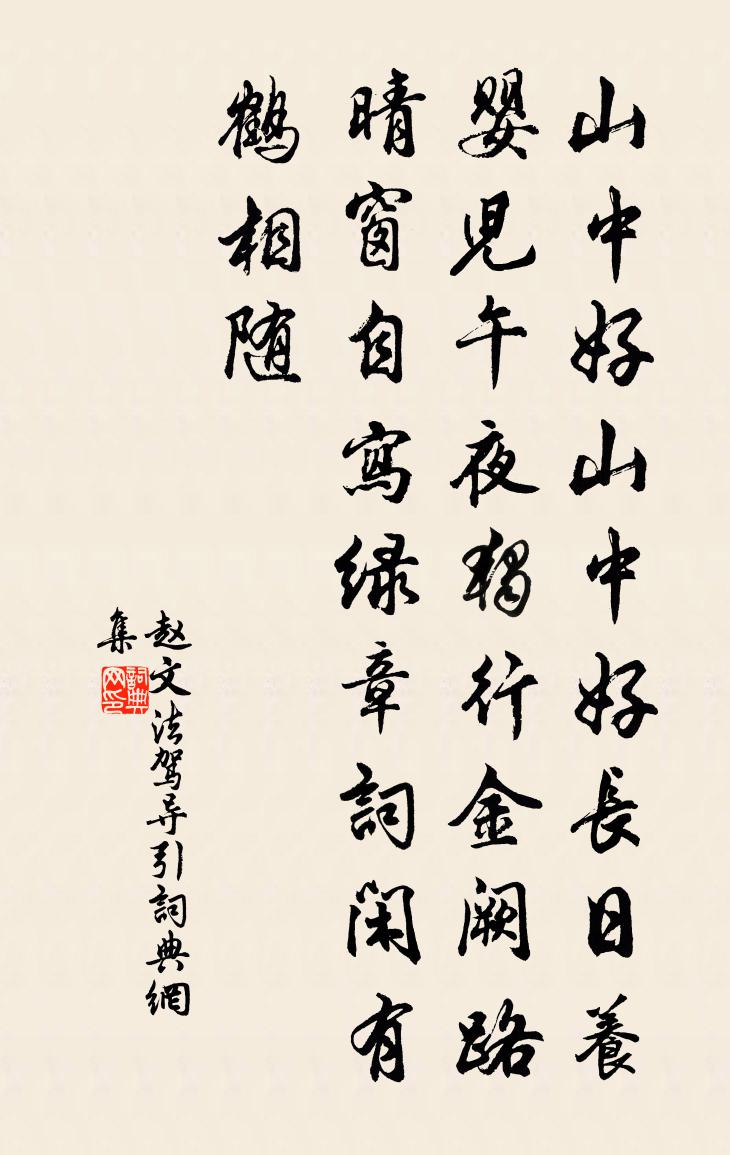 山中好山中好長日養
嬰児午夜獨行金阙路
晴窗自寫緑章詞閑有
鶴相随
赵文法驾导引詞典網
集
詞典网印